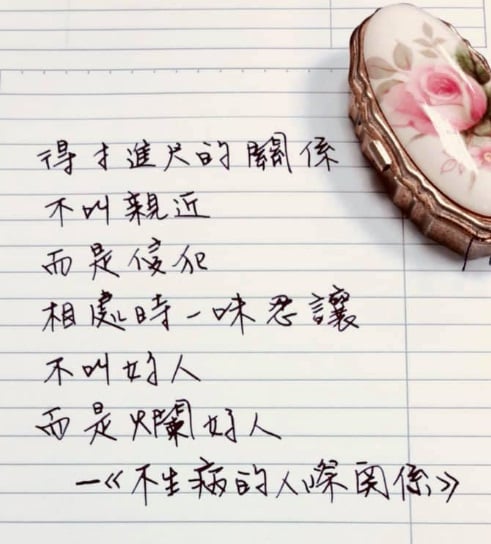 得寸進尺的關係
不叫親近
而是侵犯
相處時一味忍讓
不叫好人
而是爛好人
—《不生病的人際関係》